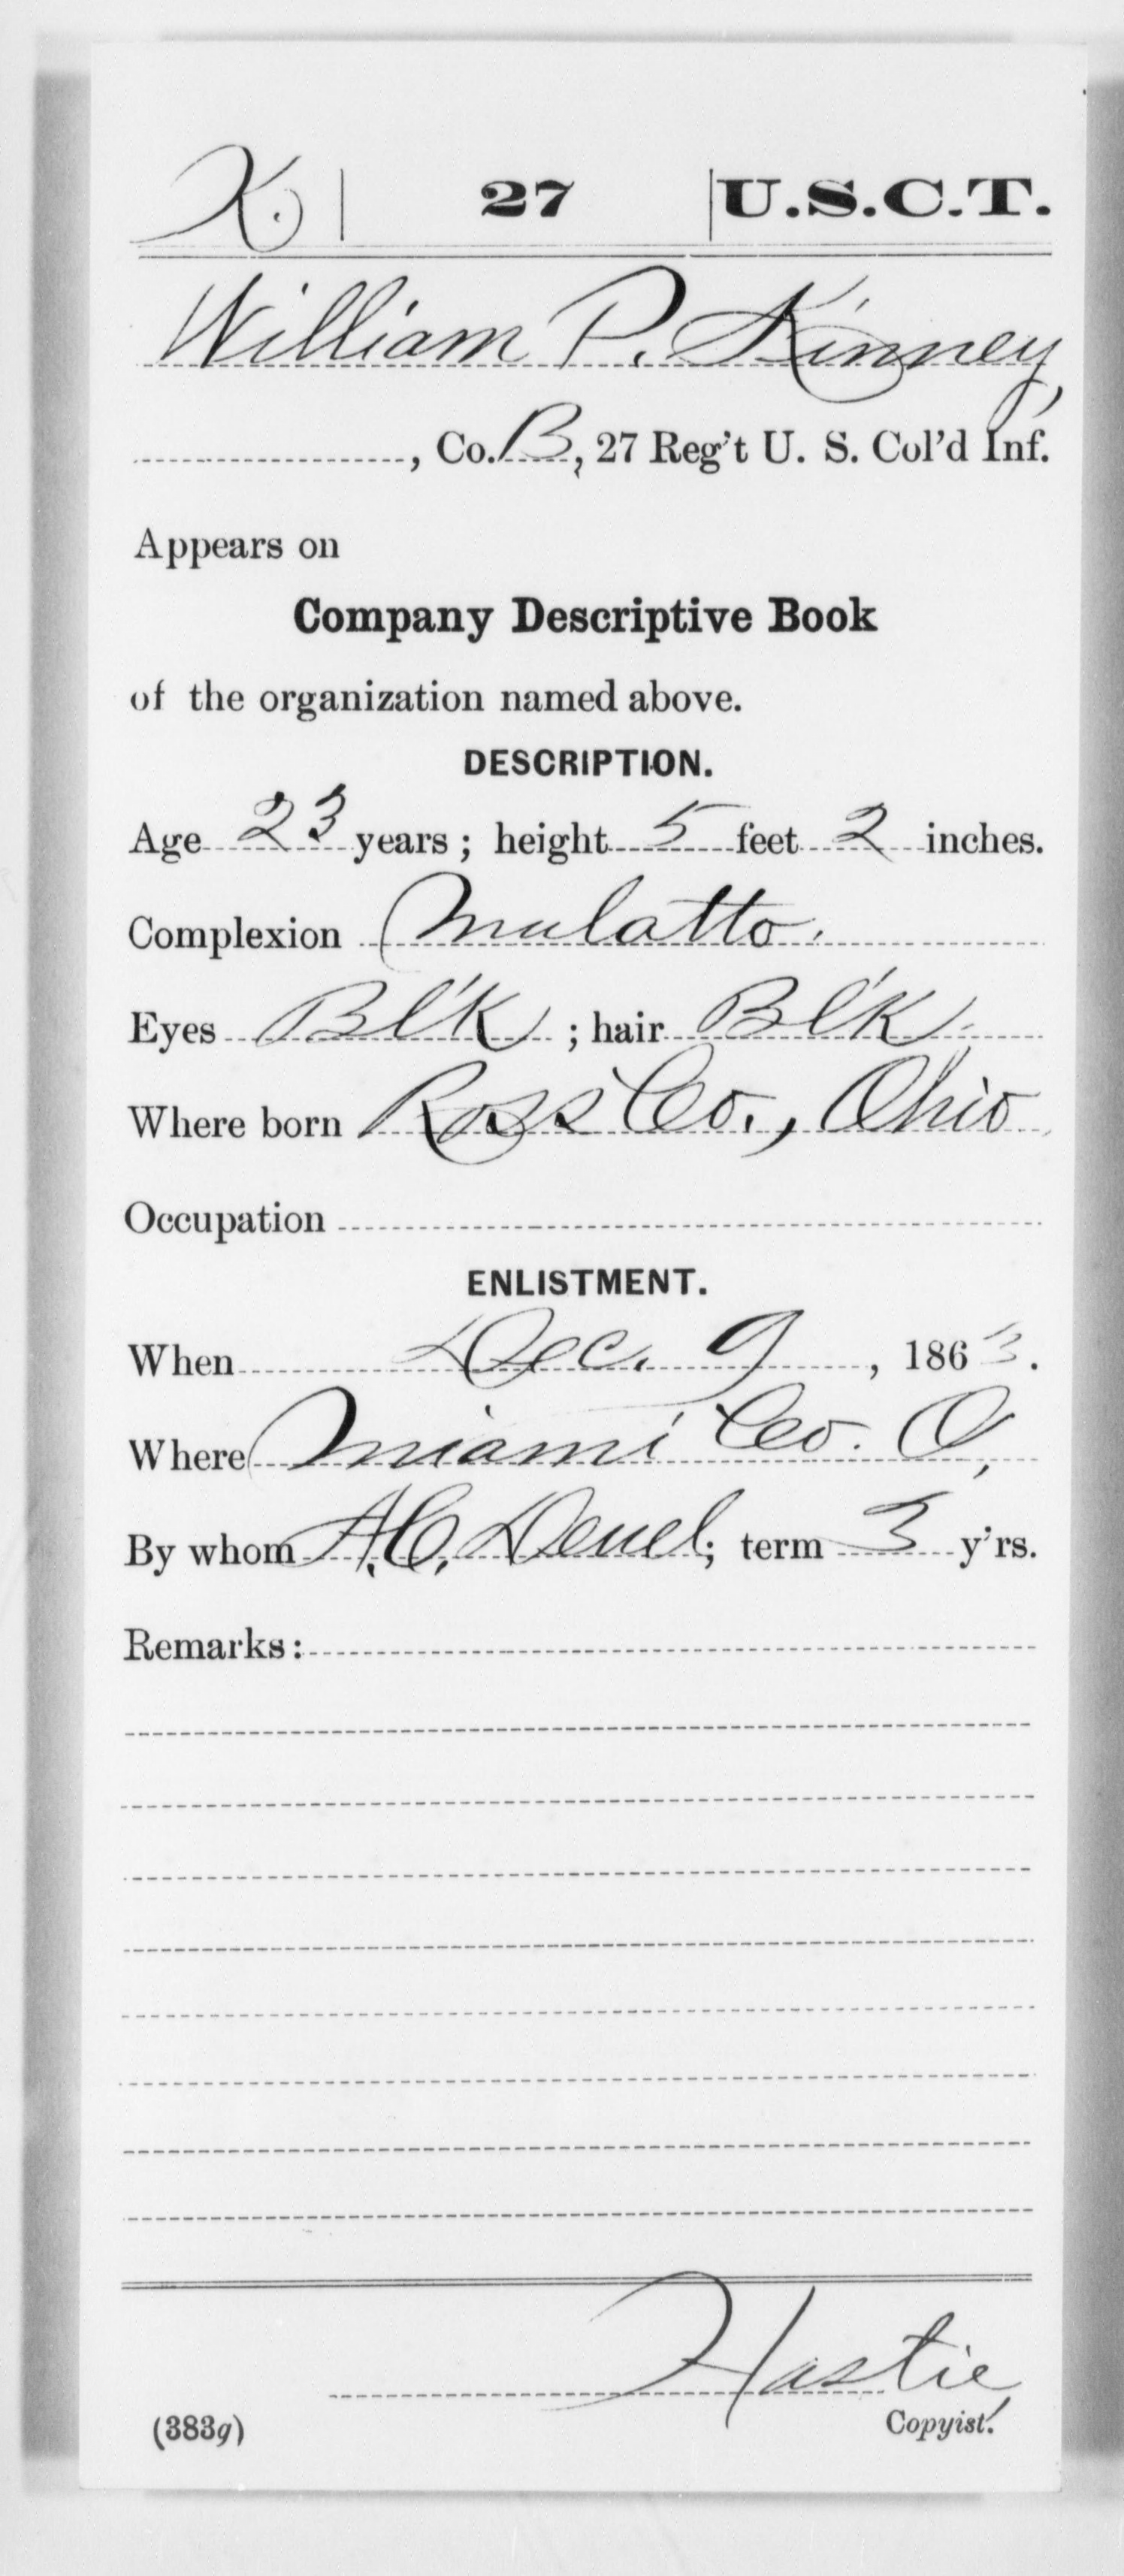 K. | 27 | U.S.C.T.
William P. Kinney,
, Co. B, 27 Reg't U. S. Col'd Inf.
Appears on
Company Descriptive Book
of the organization named above.
DESCRIPTION.
Age 23 years; height 5 feet 2 inches.
Complexion Mulatto.
Eyes Bl'k; hair Bl'k.
Where born Ross Co., Ohio
Occupation
ENLISTMENT.
When Dec. 9, 1863.
Where Miami Co. O,
By whom A.C. Deuel; term 3 y'rs.
Remarks:
Hastie,
(383g) Copyist.